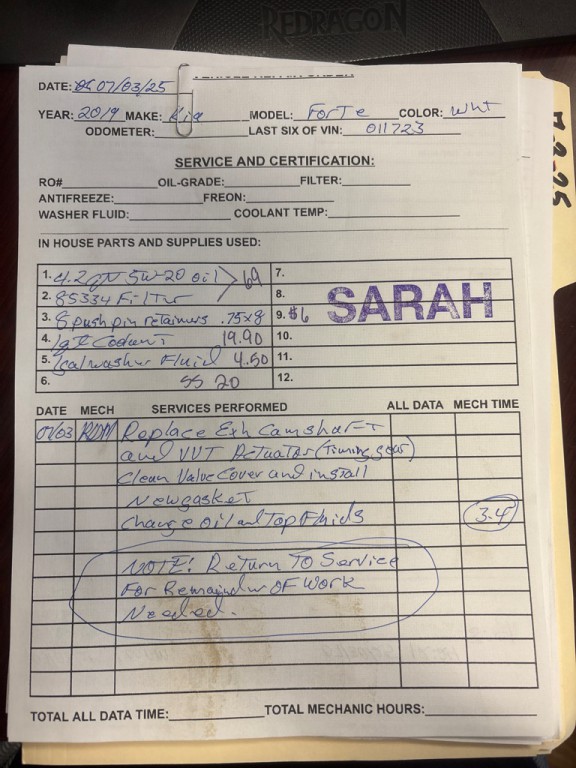 REDRAGON
DATE: 07/03/25
YEAR: 2019 MAKE: Kia MODEL: ForTe COLOR: wht
ODOMETER: LAST SIX OF VIN: 011723
SERVICE AND CERTIFICATION:
RO# OIL-GRADE: FILTER:
ANTIFREEZE: FREON:
WASHER FLUID: COOLANT TEMP:
IN HOUSE PARTS AND SUPPLIES USED:
1. 4.2 5W-20 oil 69 7.
2. 85334 FilTer 8.
3. 8 push pin retainers .75x8 9. $6
SARAH
4. 1gal Coolant 19.90 10.
5. 1gal washer Fluid 4.50 11.
6. SS 20 12.
DATE MECH SERVICES PERFORMED ALL DATA MECH TIME
07/03 RDM Replace Exh CamshaFT
and VVT ActuaTor (Timing gear)
Clean Valve Cover and install
New gasket
Change oil and Top Fluids 3.4
NOTE: ReTurn To Service
For Remainder OF Work
Needed.
TOTAL ALL DATA TIME: TOTAL MECHANIC HOURS: